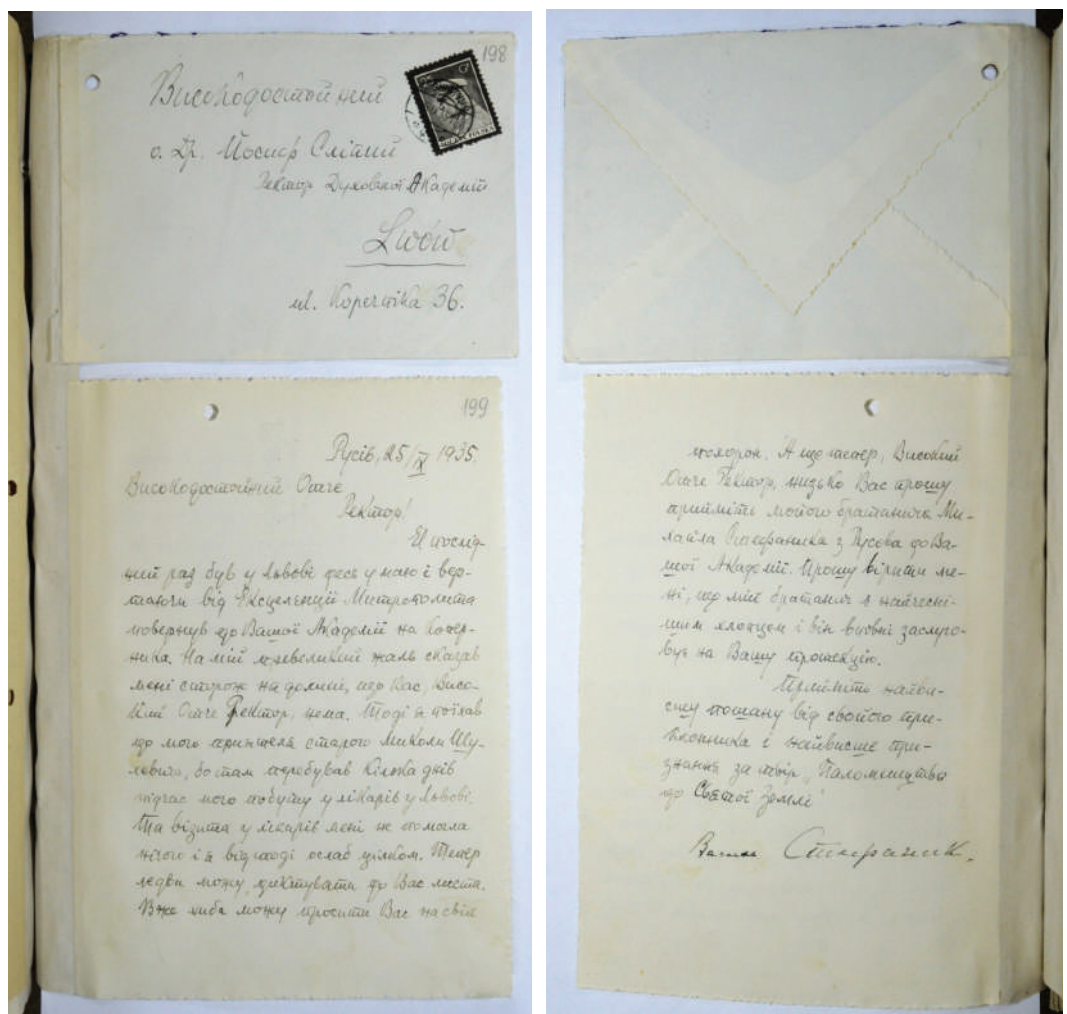 198
Високодостойний
о. Др. Йосиф Сліпий
Ректор Духовної Академії
Lwów
ul. Коперніка 36.
199
Русів, 25/IX 1935.
Високодостойний Отче
Ректор!
Я послід-
ний раз був у Львові десь у маю і вер-
таючи від Ексцеленції Митрополита
повернув до Вашої Академії на Копер-
ника. На мій превеликий жаль сказав
мені сторож на долині, що Вас, Висо-
кий Отче Ректор, нема. Тоді я поїхав
до мого приятеля старого Миколи Шу-
хевича, бо там перебував кілька днів
підчас мого побуту у лікарів у Львові.
Та візита у лікарів мені не помогла
нічого і я відтоді ослаб цілком. Тепер
ледви можу диктувати до Вас листа.
Вже хиба можу просити Вас на свій
похорон. А ще тепер, Високий
Отче Ректор, низько Вас прошу
прийміть мойого братанича Ми-
хайла Стефаника з Русова до Ва-
шої Академії. Прошу вірити ме-
ні, що мій братанич є найчесні-
шим хлопцом і він вповні заслуго-
вує на Вашу протекцію.
Прийміть найви-
сшу пошану від свойого при-
клонника і найвисше при-
знання за твір „Паломництво
до Святої Землі"
Василь Стефаник.